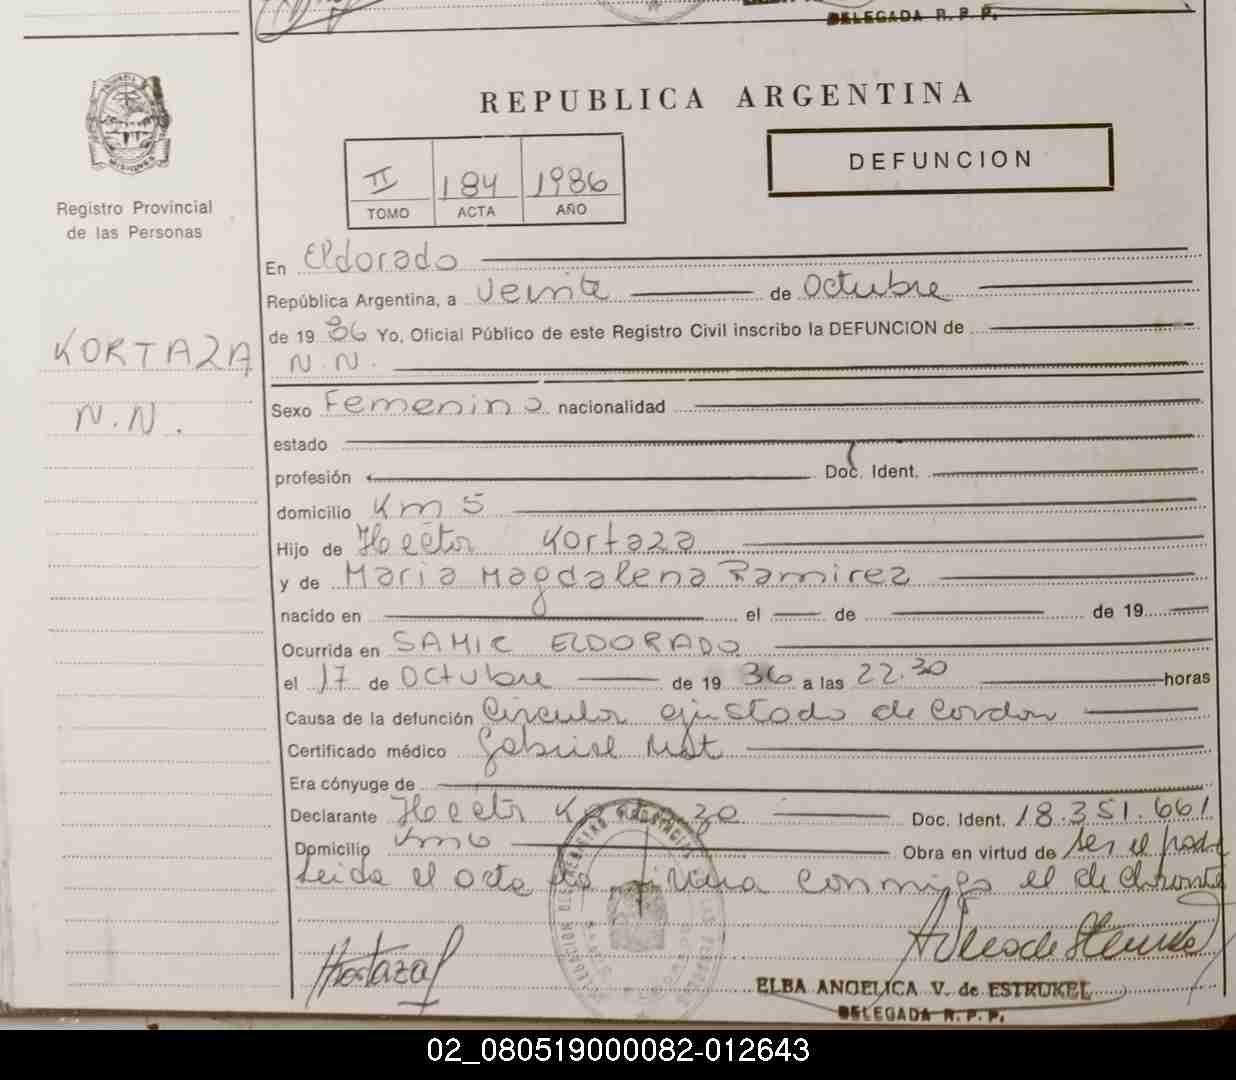 DELEGADA R. P. P.
REPUBLICA ARGENTINA
DEFUNCION
II 184 1986
TOMO ACTA AÑO
Registro Provincial
de las Personas
En Eldorado
República Argentina, a veinte de Octubre
de 19 86 Yo, Oficial Público de este Registro Civil inscribo la DEFUNCION de
KORTAZA
N.N.
N.N.
Sexo Femenino nacionalidad
estado
profesión Doc. Ident.
domicilio Km 5
Hijo de Hector Kortaza
y de Maria Magdalena Ramirez
nacido en el de de 19
Ocurrida en SAMIC ELDORADO
el 17 de Octubre de 19 86 a las 22.30 horas
Causa de la defunción Circular ajustado de Cordon
Certificado médico Gabriel
Era cónyuge de
Declarante Hector Kortaza Doc. Ident. 18.351.661
Domicilio Obra en virtud de ser el padre
Leida el acta la firma conmigo el declarante
ELBA ANGELICA V. de ESTRUKEL
DELEGADA R. P. P.
02_080519000082-012643